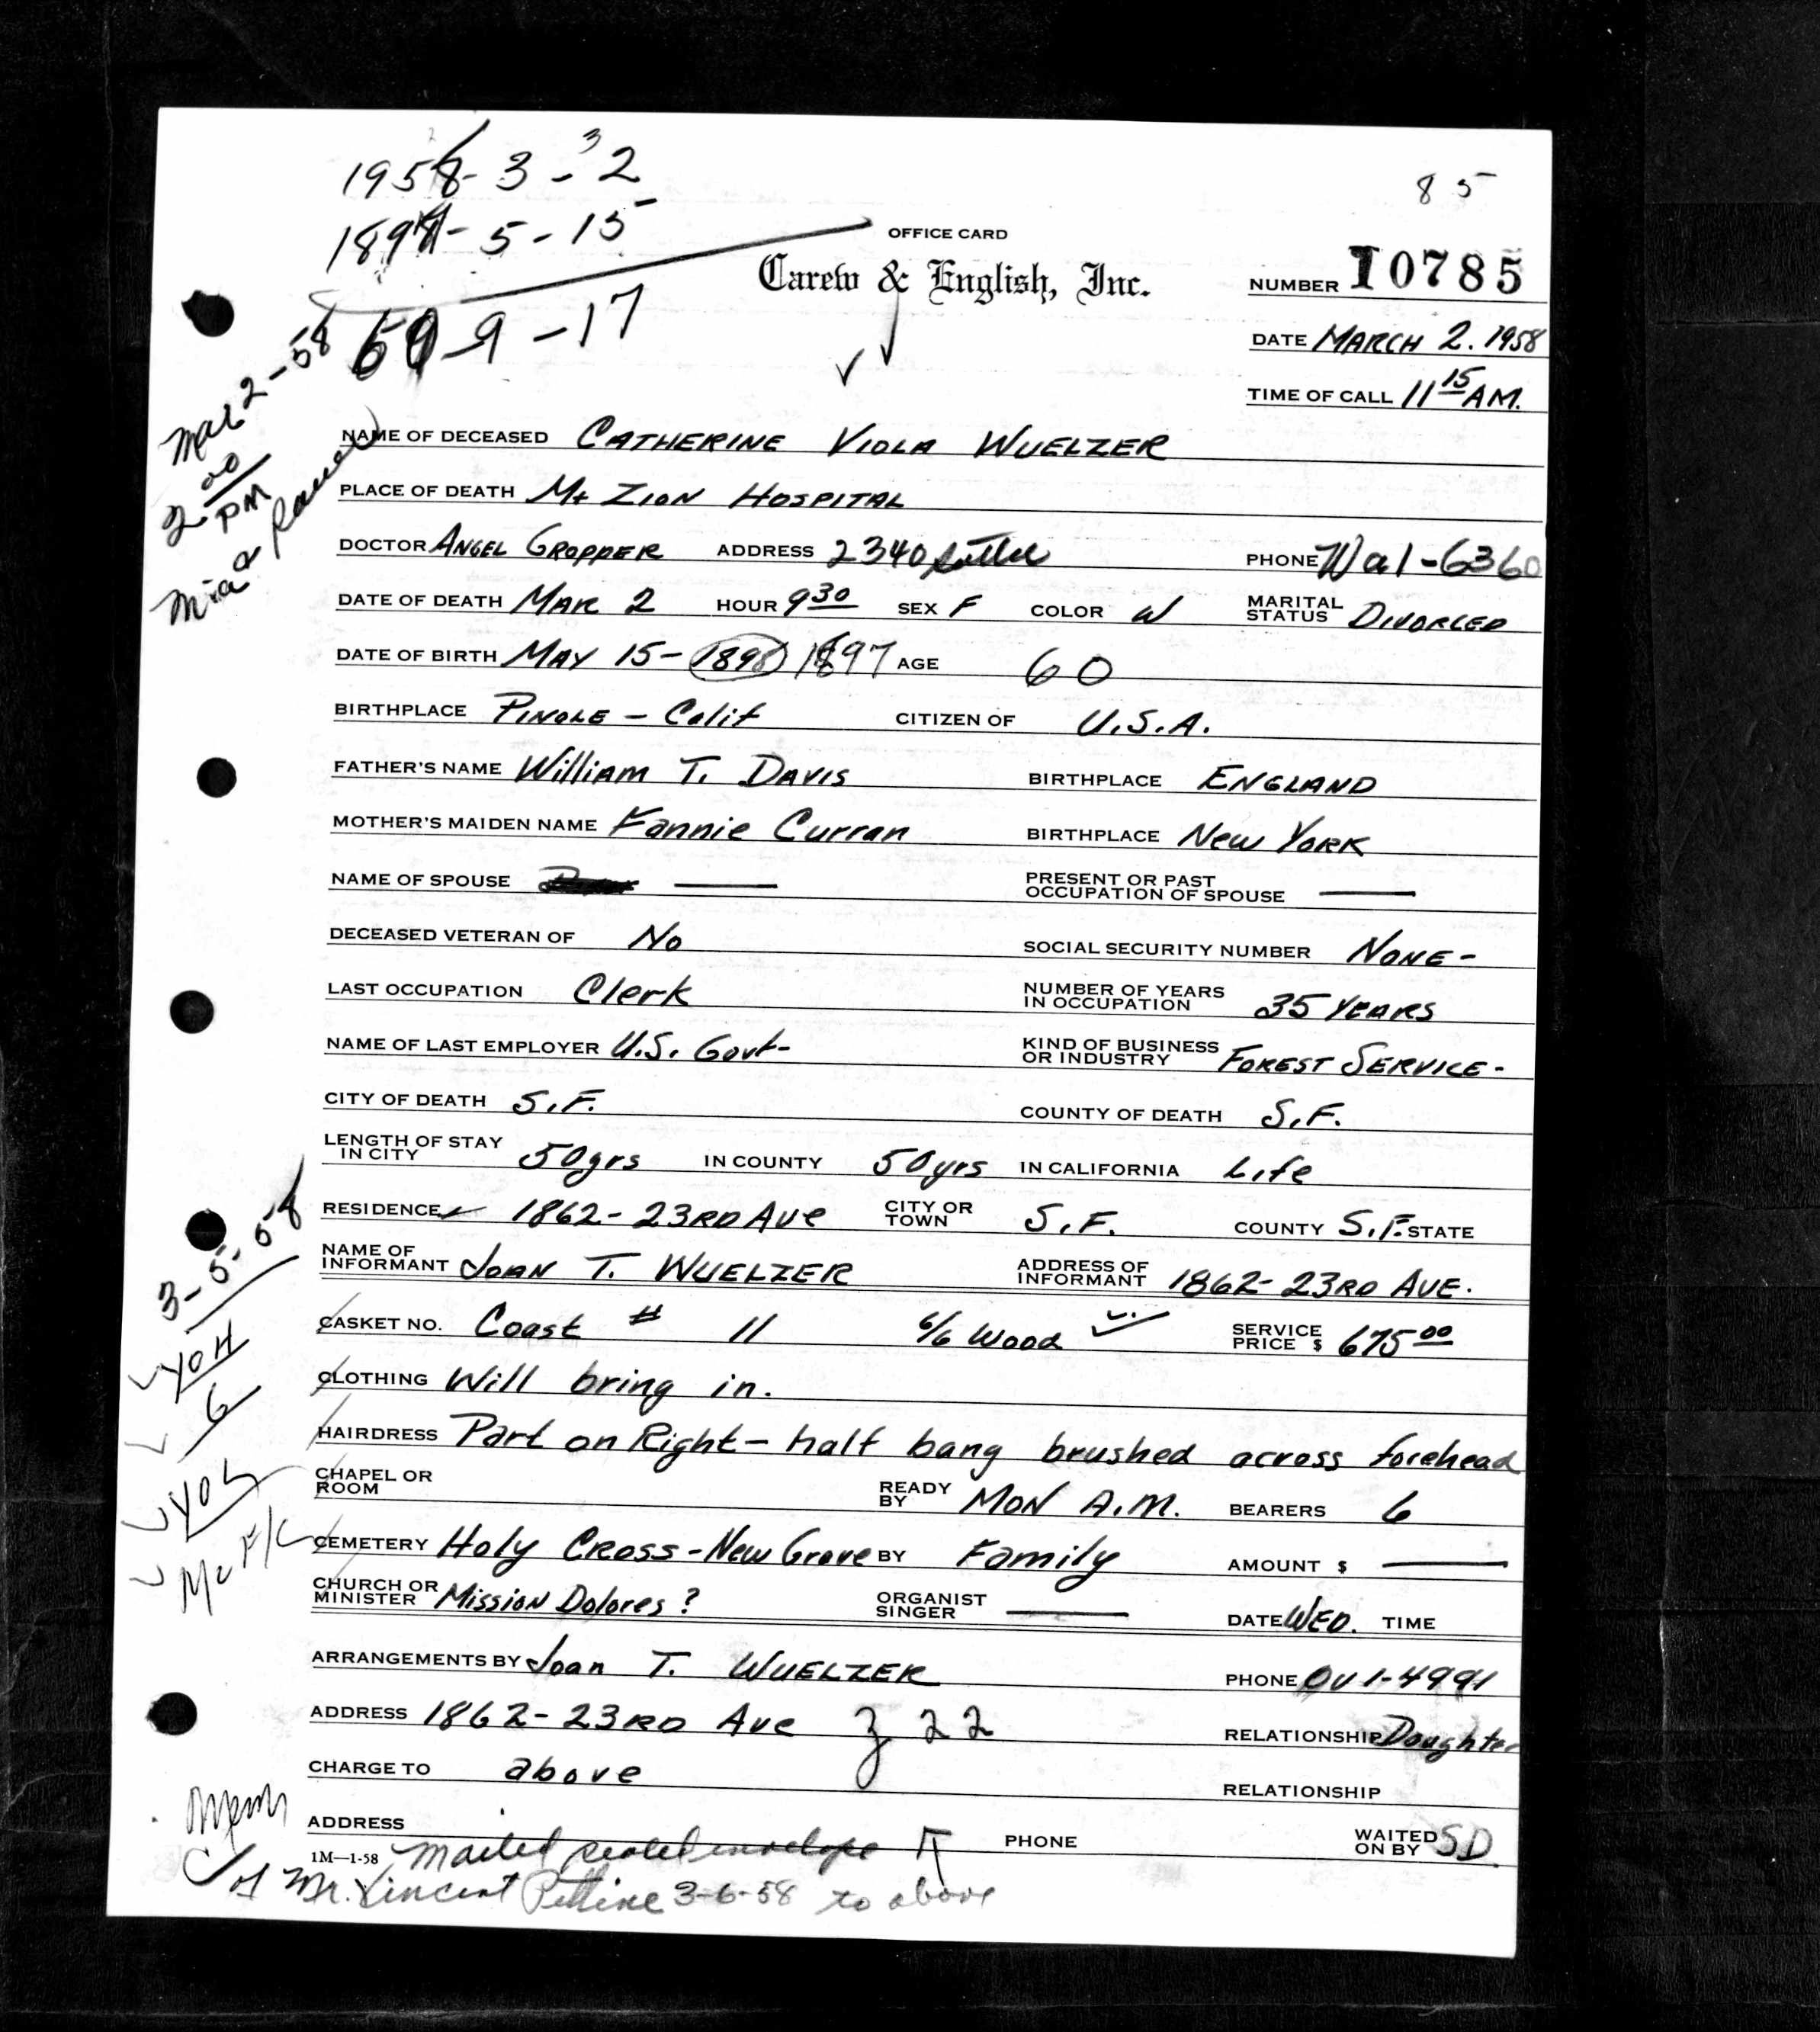 1958-3-32
85
1897-5-15
OFFICE CARD
Carew & English, Inc.
NUMBER 10785
60-9-17
DATE MARCH 2. 1958
TIME OF CALL 11 15 AM.
Mar 2-58
2 00 PM
NAME OF DECEASED CATHERINE VIOLA WUELZER
PLACE OF DEATH Mt ZION HOSPITAL
DOCTOR ANGEL GROPPER ADDRESS 2340 Sutter PHONE Wal-6360
DATE OF DEATH MAR 2 HOUR 9 30 SEX F COLOR W MARITAL STATUS DIVORCED
DATE OF BIRTH MAY 15-1898 1897 AGE 60
BIRTHPLACE PINOLE - Calif CITIZEN OF U.S.A.
FATHER'S NAME William T. DAVIS BIRTHPLACE ENGLAND
MOTHER'S MAIDEN NAME Fannie Curran BIRTHPLACE New YORK
NAME OF SPOUSE — PRESENT OR PAST OCCUPATION OF SPOUSE —
DECEASED VETERAN OF No SOCIAL SECURITY NUMBER NONE-
LAST OCCUPATION Clerk NUMBER OF YEARS IN OCCUPATION 35 YEARS
NAME OF LAST EMPLOYER U.S. Govt- KIND OF BUSINESS OR INDUSTRY FOREST SERVICE-
CITY OF DEATH S.F. COUNTY OF DEATH S.F.
LENGTH OF STAY IN CITY 50yrs IN COUNTY 50yrs IN CALIFORNIA Life
RESIDENCE 1862-23RD AVE CITY OR TOWN S.F. COUNTY S.F. STATE
NAME OF INFORMANT JOAN T. WUELZER ADDRESS OF INFORMANT 1862-23RD AVE.
3-5-58
CASKET NO. Coast # 11 6/6 Wood SERVICE PRICE $ 675 00
CLOTHING Will bring in.
6
HAIRDRESS Part on Right - half bang brushed across forehead
CHAPEL OR ROOM READY BY MON A.M. BEARERS 6
CEMETERY Holy Cross-New Grave BY Family AMOUNT $ —
CHURCH OR MINISTER Mission Dolores? ORGANIST SINGER — DATE WED. TIME
ARRANGEMENTS BY Joan T. WUELZER PHONE OV 1-4991
ADDRESS 1862-23RD AVE z 22 RELATIONSHIP Daughter
CHARGE TO above RELATIONSHIP
ADDRESS PHONE WAITED ON BY SD.
1M—1-58 Mailed sealed envelope
of Mr. Vincent 3-6-58 to above